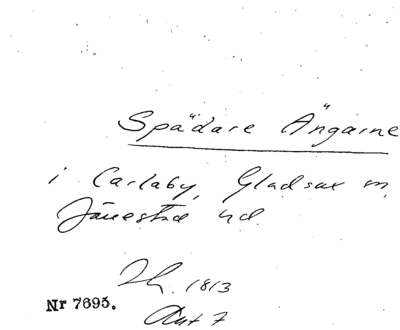 Spädare Ängarne
i Carlaby, Gladsax m,
Järrestad hd.
Lh. 1813
Akt 7
Nr 7695.